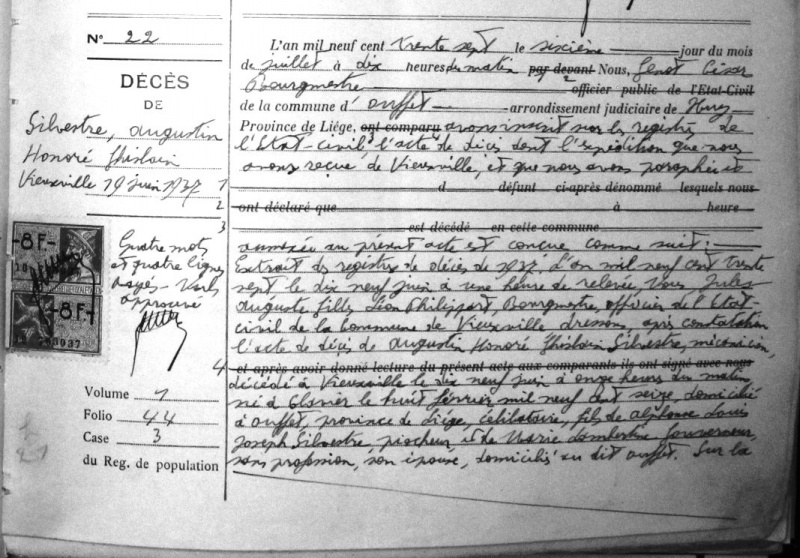 N° 22
DÉCÈS
DE
Silvestre, Augustin
Honoré Ghislain
Vieuxville 19 juin 1937 1
2
3
-8F-
-8F-
Quatre mots
et quatre lignes
rayés - Nuls
approuvé
4
Volume 7
Folio 44
Case 3
du Reg. de population
L'an mil neuf cent trente sept le sixième jour du mois
de juillet à dix heures du matin par devant Nous, Genot César
Bourgmestre officier public de l'Etat-Civil
de la commune d'Ouffet arrondissement judiciaire de Huy
Province de Liége, ont comparu avons inscrit sur les registres de
l'Etat-civil l'acte de décès dont l'expédition que nous
avons reçue de Vieuxville, et que nous avons paraphée et
d défunt ci-après dénommé lesquels nous
ont déclaré que à heure
est décédé en cette commune
annexée au présent acte est conçue comme suit :
Extrait des registres de décès de 1937. L'an mil neuf cent trente
sept le dix neuf juin à une heure de relevée, Nous Jules
Auguste fills Léon Philippart, Bourgmestre, officier de l'Etat-
civil de la Commune de Vieuxville dressons, après constatation
l'acte de décès de Augustin Honoré Ghislain Silvestre, mécanicien,
et après avoir donné lecture du présent acte aux comparants ils ont signé avec nous
décédé à Vieuxville le dix neuf juin à onze heures du matin
né à le huit février mil neuf cent seize, domicilié
à Ouffet, province de Liége, célibataire, fils de Alphonse Louis
Joseph Silvestre piocheur, et de Marie Lambertine Gouverneur,
sans profession, son épouse, domiciliés au dit Ouffet. Sur la